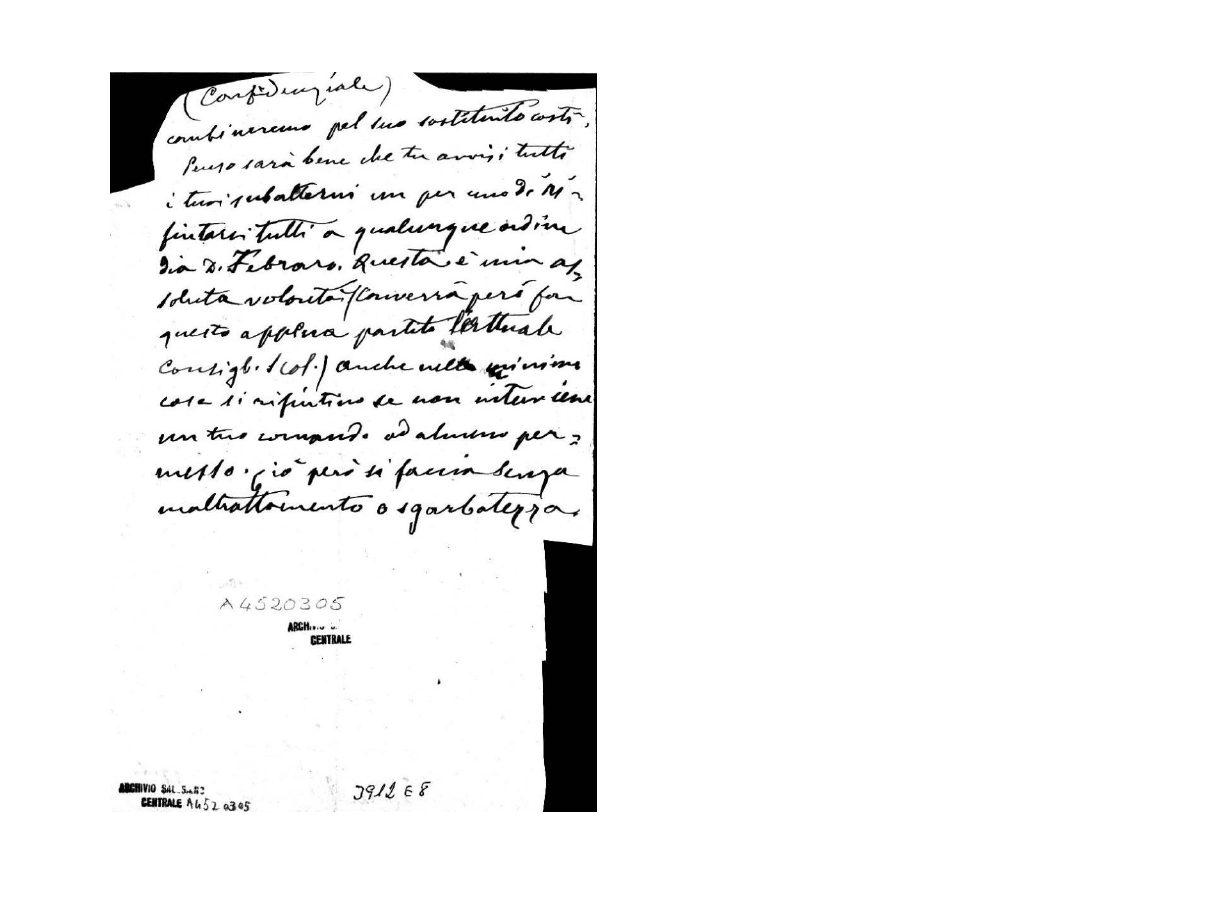 (Confidenziale)
combineremo pel suo sostituito costì.
Penso sarà bene che tu avvisi tutti
i tuoi subalterni un per uno di ri-
fiutarsi tutti a qualunque ordine
dia D. Febraro. Questa è mia as-
soluta volontà (Converrà però far
questo appena partito l'attuale
Consigl. Scol.) anche nelle minime
cose si rifiutino se non interviene
un tuo comando od almeno per=
messo. Ciò però si faccia senza
maltrattamento o sgarbatezza.
A4520305
CENTRALE
ARCHIVIO SAL.
CENTRALE A452 0305
3912 E 8